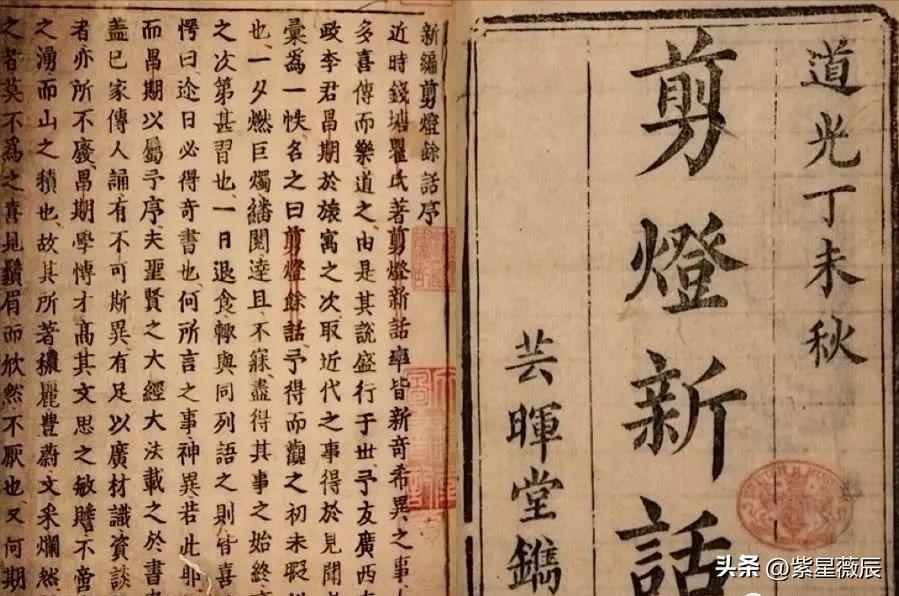 道光丁未秋
剪燈新話
芸暉堂鐫
新編剪燈餘話序
近時錢塘瞿氏著剪燈新話率皆新奇希異之事
多喜傳而樂道之由是其說盛行于世予友廣西
政李君昌期於旅寓之次取近代之事得於見聞
彙為一帙名之曰剪燈餘話予得而觀之初未暇
也一夕燃巨燭繙閱達旦不寐盡得其事之始終
之次第甚習也一日退食輒與同列語之則皆喜
愕曰迩日必得奇書也何所言之事神異若此耶
而昌期以屬予序夫聖賢之大經大法載之於書
蓋已家傳人誦有不可斯異有足以廣材識資談
者亦所不廢昌期學博才高其文思之敏贍不啻
之湧而山之積也故其所著穠麗豐蔚文采爛然
之者莫不爲之喜見鬚眉而欣然不厭也又何期
头条 @紫星薇辰